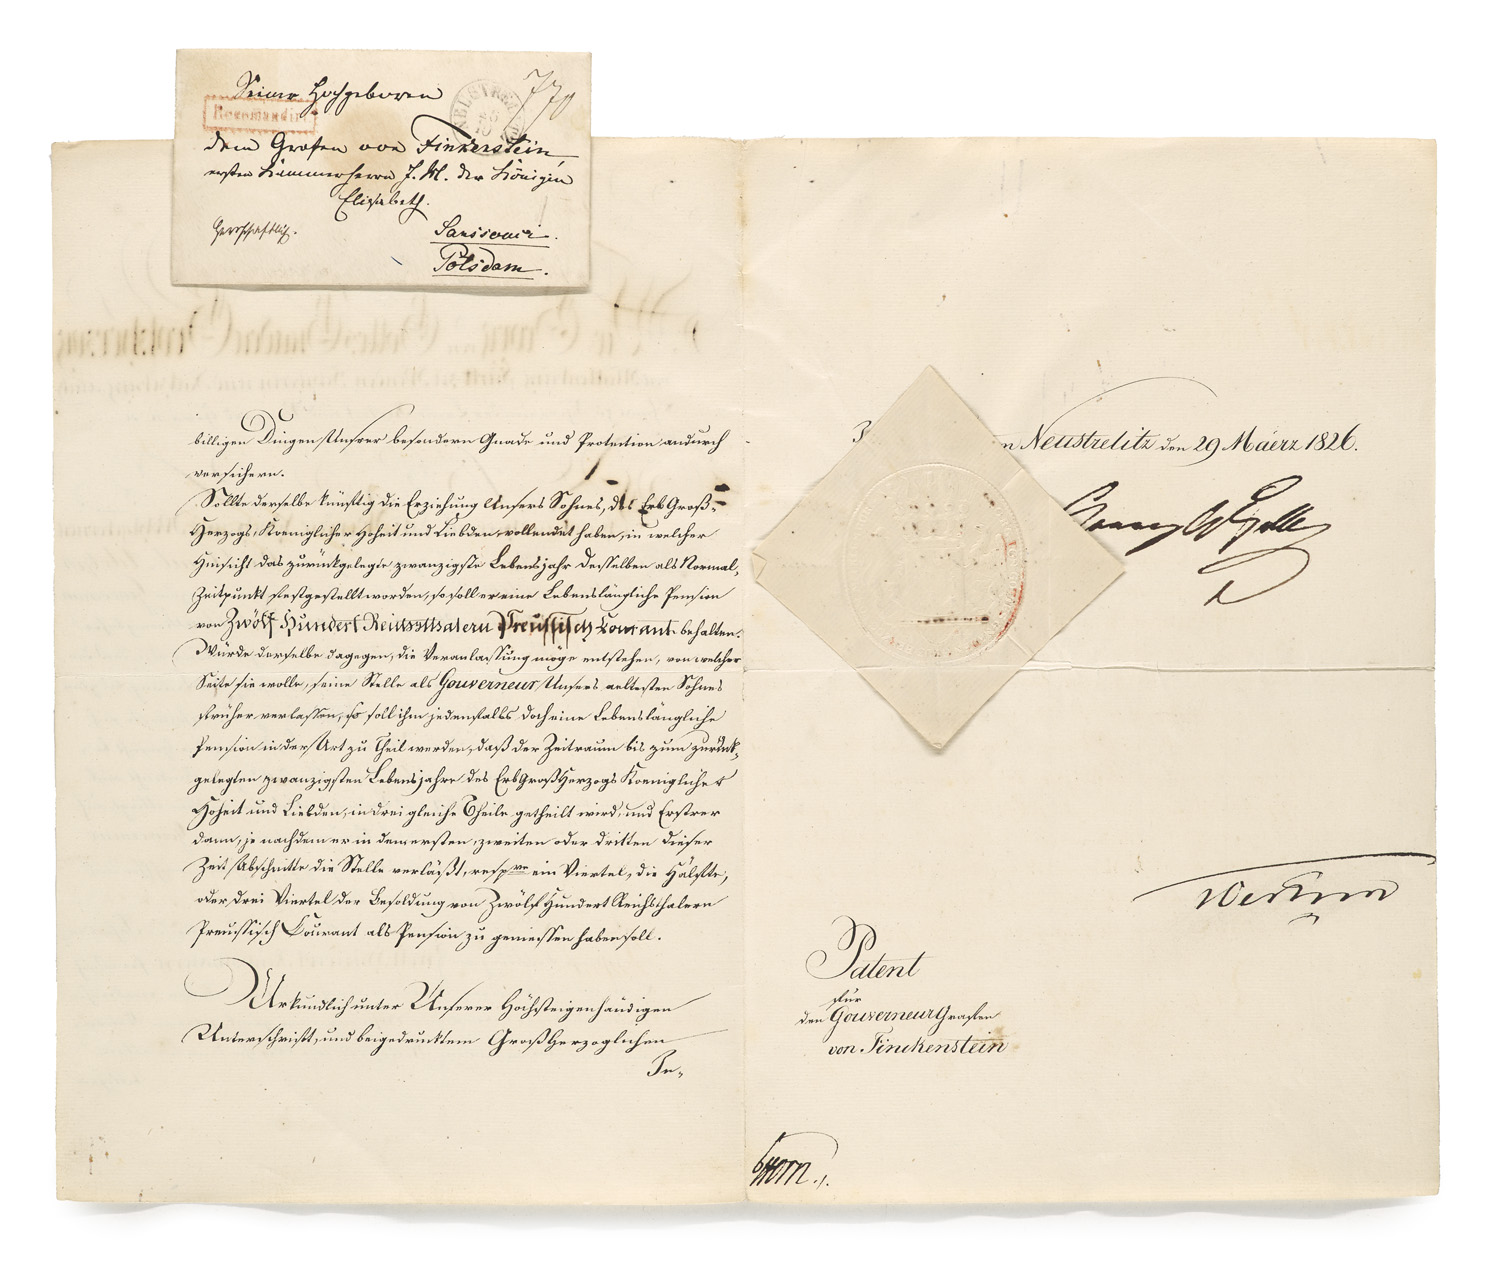 Seiner Hochgeboren
770
Recomandirt
dem Grafen von Finkenstein,
ersten Kammerherrn J. M. der Königin
Elisabeth.
Herrschaftlich.
Sanssouci.
Potsdam.
billigen Dingen Unsrer besondern Gnade und Protection andurch
versichern.
Sollte derselbe künftig die Erziehung Unsers Sohnes, des ErbGroß-
Herzogs Koeniglicher Hoheit und Liebden, vollendet haben, in welcher
Hinsicht das zurückgelegte zwanzigste Lebensjahr Desselben als Normal-
Zeitpunkt festgestellt worden, so soll er eine Lebenslängliche Pension
von Zwölf Hundert Reichsthalern Preussisch Courant behalten.
Würde derselbe dagegen, die Veranlassung möge entstehen, von welcher
Seite sie wolle, seine Stelle als Gouverneur Unsers aeltesten Sohnes
früher verlassen, so soll ihm jedenfalls doch eine Lebenslängliche
Pension in der Art zu Theil werden, daß der Zeitraum bis zum zurück-
gelegten zwanzigsten Lebensjahre des ErbGroßHerzogs Koeniglicher
Hoheit und Liebden, in drei gleiche Theile getheilt wird, und Erstrer
dann, je nachdem er in dem ersten, zweiten oder dritten dieser
Zeit Abschnitte die Stelle verläßt, resp.ve ein Viertel, die Hälfte,
oder drei Viertel der Besoldung von Zwölf Hundert Reichsthalern
Preussisch Courant als Pension zu geniessen haben soll.
Urkundlich unter Unserer Höchsteigenhändigen
Unterschrift, und beigedrucktem GroßHerzoglichen
In-
Neustrelitz den 29 Maerz 1826.
Patent
für
den Gouverneur Grafen
von Finckenstein